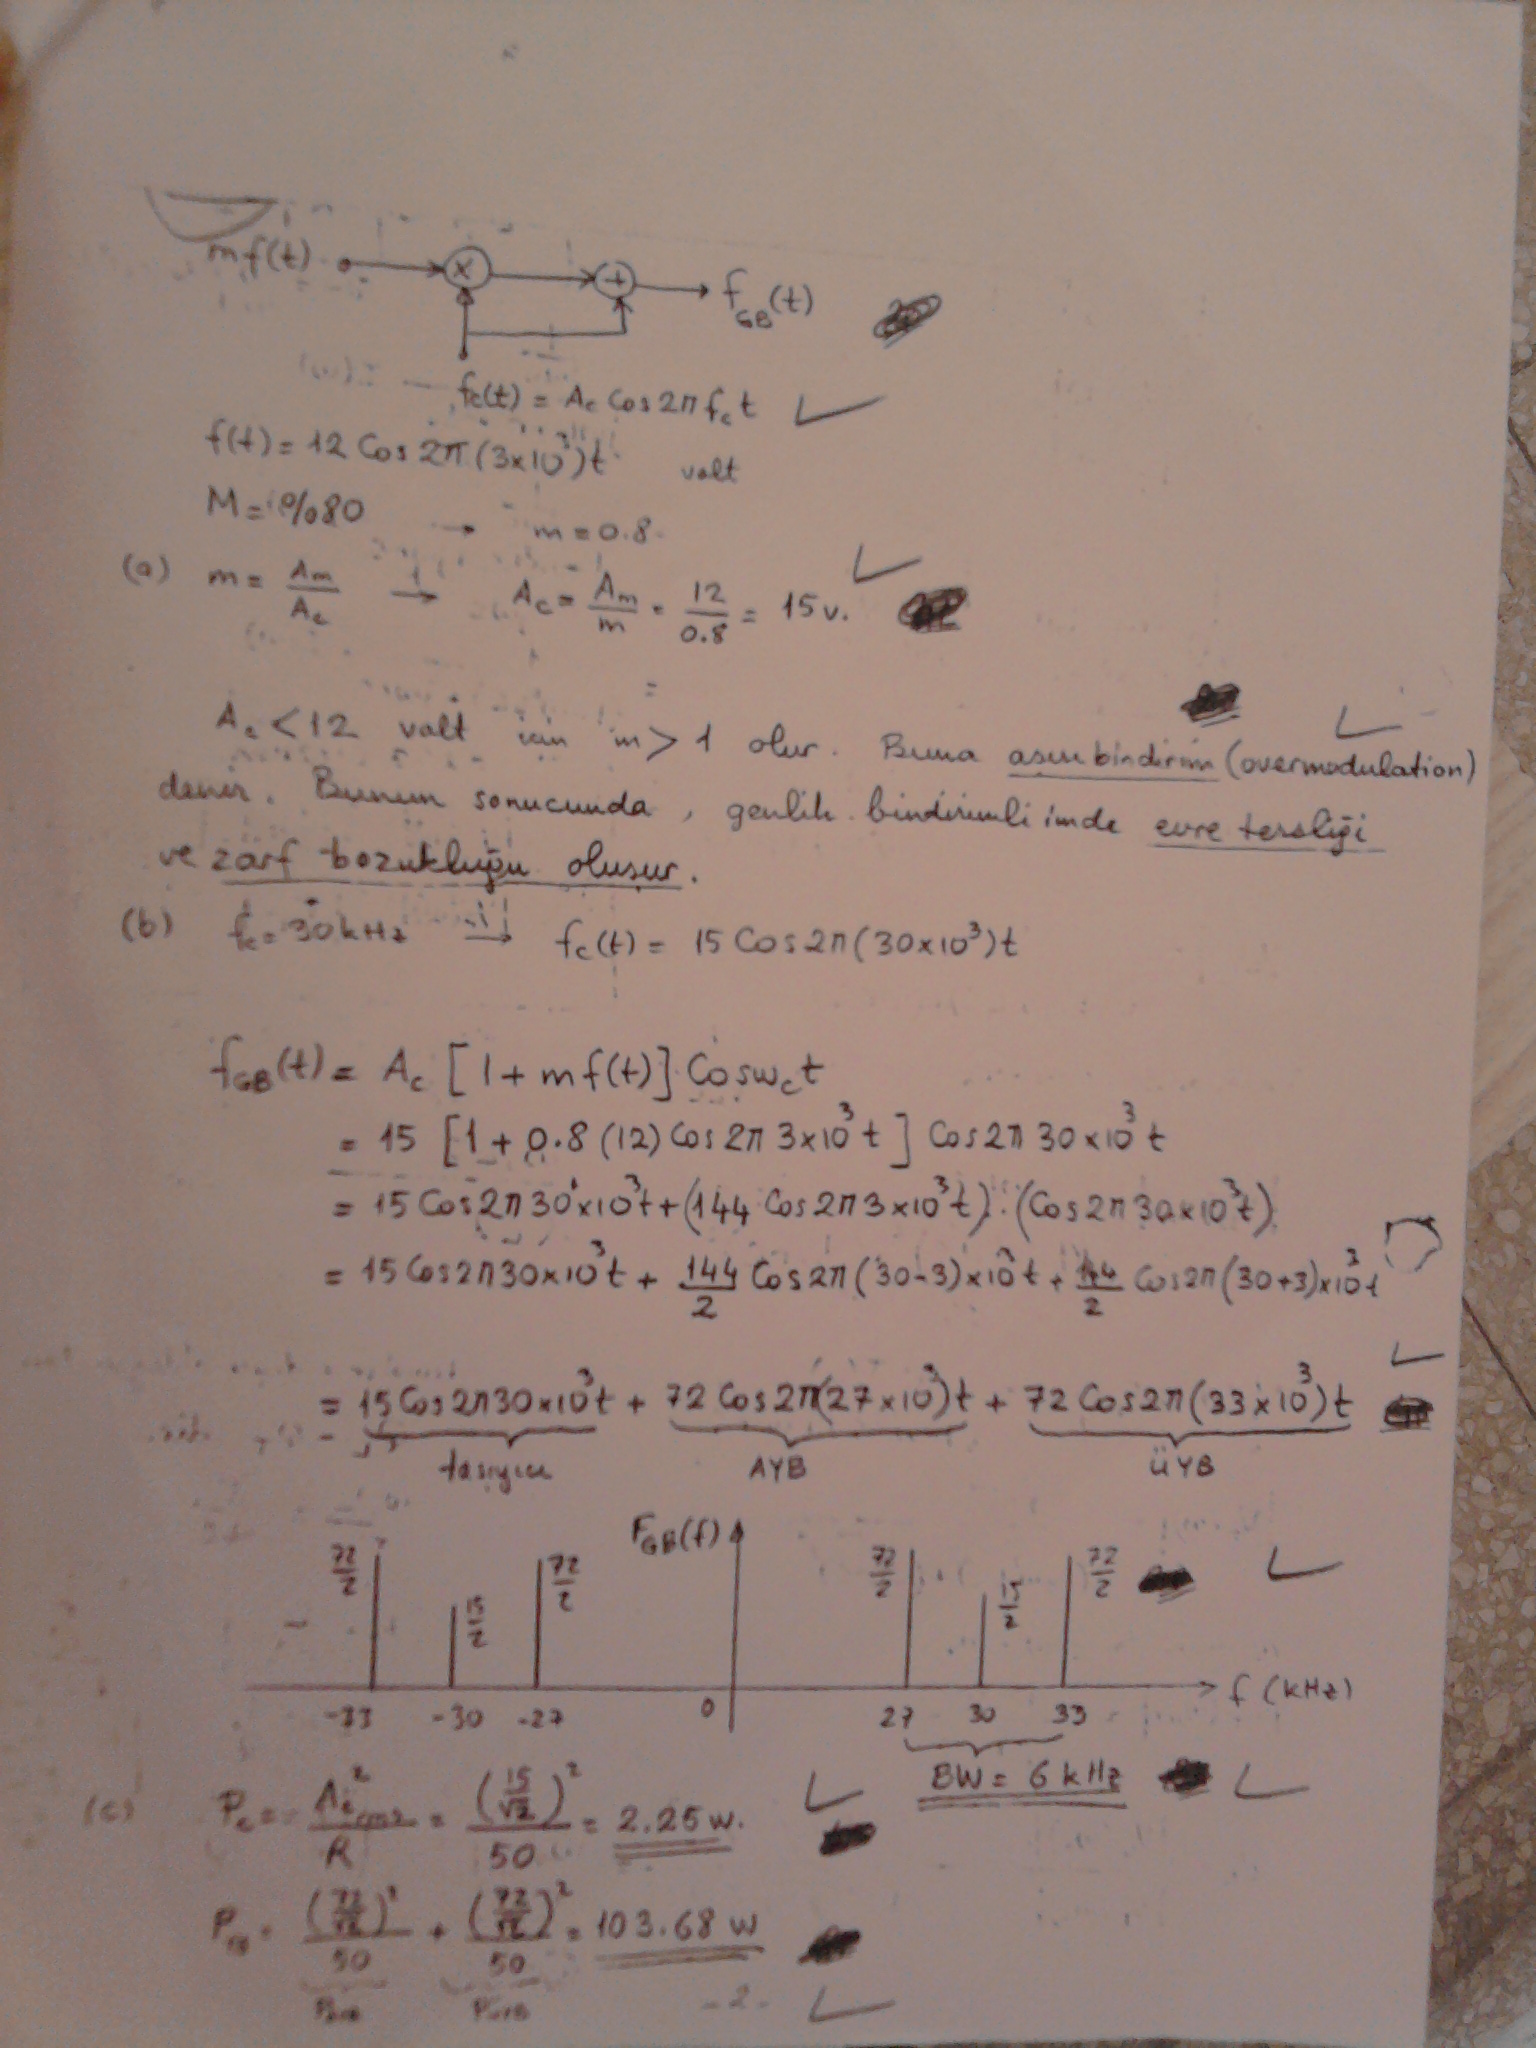 mf(t) × + f_GB(t)
f_c(t) = A_c Cos2π f_c t
f(t) = 12 Cos 2π (3×10³)t volt
M = %80 → m = 0.8
(a) m = A_m/A_c → A_c = A_m/m = 12/0.8 = 15 v.
A_c < 12 volt için m > 1 olur. Buna aşırı bindirim (overmodulation)
denir. Bunun sonucunda, genlik bindirimli imde evre tersliği
ve zarf bozukluğu oluşur.
(b) f_c = 30 kHz → f_c(t) = 15 Cos2π(30×10³)t
f_GB(t) = A_c [1 + mf(t)] Cosw_c t
= 15 [1 + 0.8 (12) Cos 2π 3×10³ t] Cos2π 30×10³ t
= 15 Cos2π 30×10³t + (144 Cos2π3×10³t) · (Cos2π30×10³t)
= 15 Cos2π30×10³t + 144/2 Cos2π(30-3)×10³t + 144/2 Cos2π(30+3)×10³t
= 15 Cos2π30×10³t + 72 Cos2π(27×10³)t + 72 Cos2π(33×10³)t
taşıyıcı AYB ÜYB
F_GB(f)
72/2 15/2 72/2 72/2 15/2 72/2
-33 -30 -27 0 27 30 33 f (kHz)
BW = 6 kHz
(c) P_c = A_c rms²/R = (15/√2)²/50 = 2.25 w.
= (72/√2)²/50 + (72/√2)²/50 = 103.68 w
- 2 -